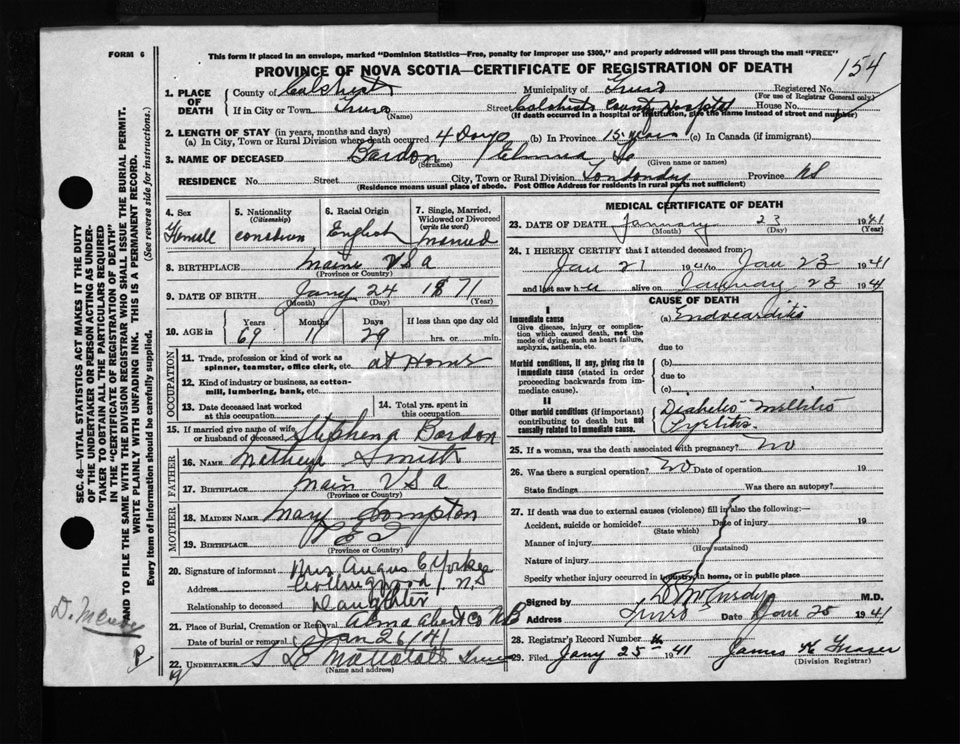 FORM 6
This form if placed in an envelope, marked "Dominion Statistics—Free, penalty for improper use $300," and properly addressed will pass through the mail "FREE"
PROVINCE OF NOVA SCOTIA—CERTIFICATE OF REGISTRATION OF DEATH 154
1. PLACE OF DEATH County of Colchester Municipality of Truro Registered No. (For use of Registrar General only)
If in City or Town Truro (Name) Street Colchester County Hospital House No.
(If death occurred in a hospital or institution, give the name instead of street and number)
2. LENGTH OF STAY (in years, months and days)
(a) In City, Town or Rural Division where death occurred 4 Days (b) In Province 15 years (c) In Canada (if immigrant)
3. NAME OF DECEASED Bardon (Surname) (Given name or names)
RESIDENCE No. Street City, Town or Rural Division Londondry Province NS
(Residence means usual place of abode. Post Office Address for residents in rural parts not sufficient)
4. Sex
5. Nationality (Citizenship)
6. Racial Origin English
7. Single, Married, Widowed or Divorced (write the word) married
8. BIRTHPLACE Maine U S A
(Province or Country)
9. DATE OF BIRTH Jany (Month) 24 (Day) 1871 (Year)
10. AGE in Years 69 Months 11 Days 29 If less than one day old hrs. or min.
OCCUPATION
11. Trade, profession or kind of work as spinner, teamster, office clerk, etc. at Home
12. Kind of industry or business, as cotton-mill, lumbering, bank, etc.
13. Date deceased last worked at this occupation
14. Total yrs. spent in this occupation
15. If married give name of wife or husband of deceased Stephen a Bardon
FATHER
16. NAME Smith
17. BIRTHPLACE Main U S A
(Province or Country)
MOTHER
18. MAIDEN NAME Mary Compton
19. BIRTHPLACE P E I
(Province or Country)
20. Signature of informant Mrs Angus C Yorke
Address Collingwood N.S
Relationship to deceased Daughter
21. Place of Burial, Cremation or Removal Alma Albert Co NB
Date of burial or removal Jan 26/41
22. UNDERTAKER Truro
(Name and address)
MEDICAL CERTIFICATE OF DEATH
23. DATE OF DEATH January (Month) 23 (Day) 1941 (Year)
24. I HEREBY CERTIFY that I attended deceased from
Jan 21 1941 to Jan 23 1941
and last saw h er alive on January 23 1941
CAUSE OF DEATH
I
Immediate cause
Give disease, injury or complication which caused death, not the mode of dying, such as heart failure, asphyxia, asthenia, etc.
(a) Endocarditis
due to
Morbid conditions, if any, giving rise to immediate cause (stated in order proceeding backwards from immediate cause).
(b)
due to
(c)
II
Other morbid conditions (if important) contributing to death but not causally related to immediate cause.
Diabetes Mellitis
Pyelitis
25. If a woman, was the death associated with pregnancy? No
26. Was there a surgical operation? No Date of operation 19
State findings Was there an autopsy?
27. If death was due to external causes (violence) fill in also the following:—
Accident, suicide or homicide? (State which) Date of injury 19
Manner of injury (How sustained)
Nature of injury
Specify whether injury occurred in industry, in home, or in public place
Signed by M.D.
Address Truro Date Jan 25 1941
28. Registrar's Record Number
29. Filed Jany 25th 1941 James K Fraser
(Division Registrar)
SEC. 46—VITAL STATISTICS ACT MAKES IT THE DUTY OF THE UNDERTAKER OR PERSON ACTING AS UNDERTAKER TO OBTAIN ALL THE PARTICULARS REQUIRED IN THE "CERTIFICATE OF REGISTRATION OF DEATH" AND TO FILE THE SAME WITH THE DIVISION REGISTRAR WHO SHALL ISSUE THE BURIAL PERMIT.
WRITE PLAINLY WITH UNFADING INK. THIS IS A PERMANENT RECORD.
Every item of information should be carefully supplied. (See reverse side for instructions.)